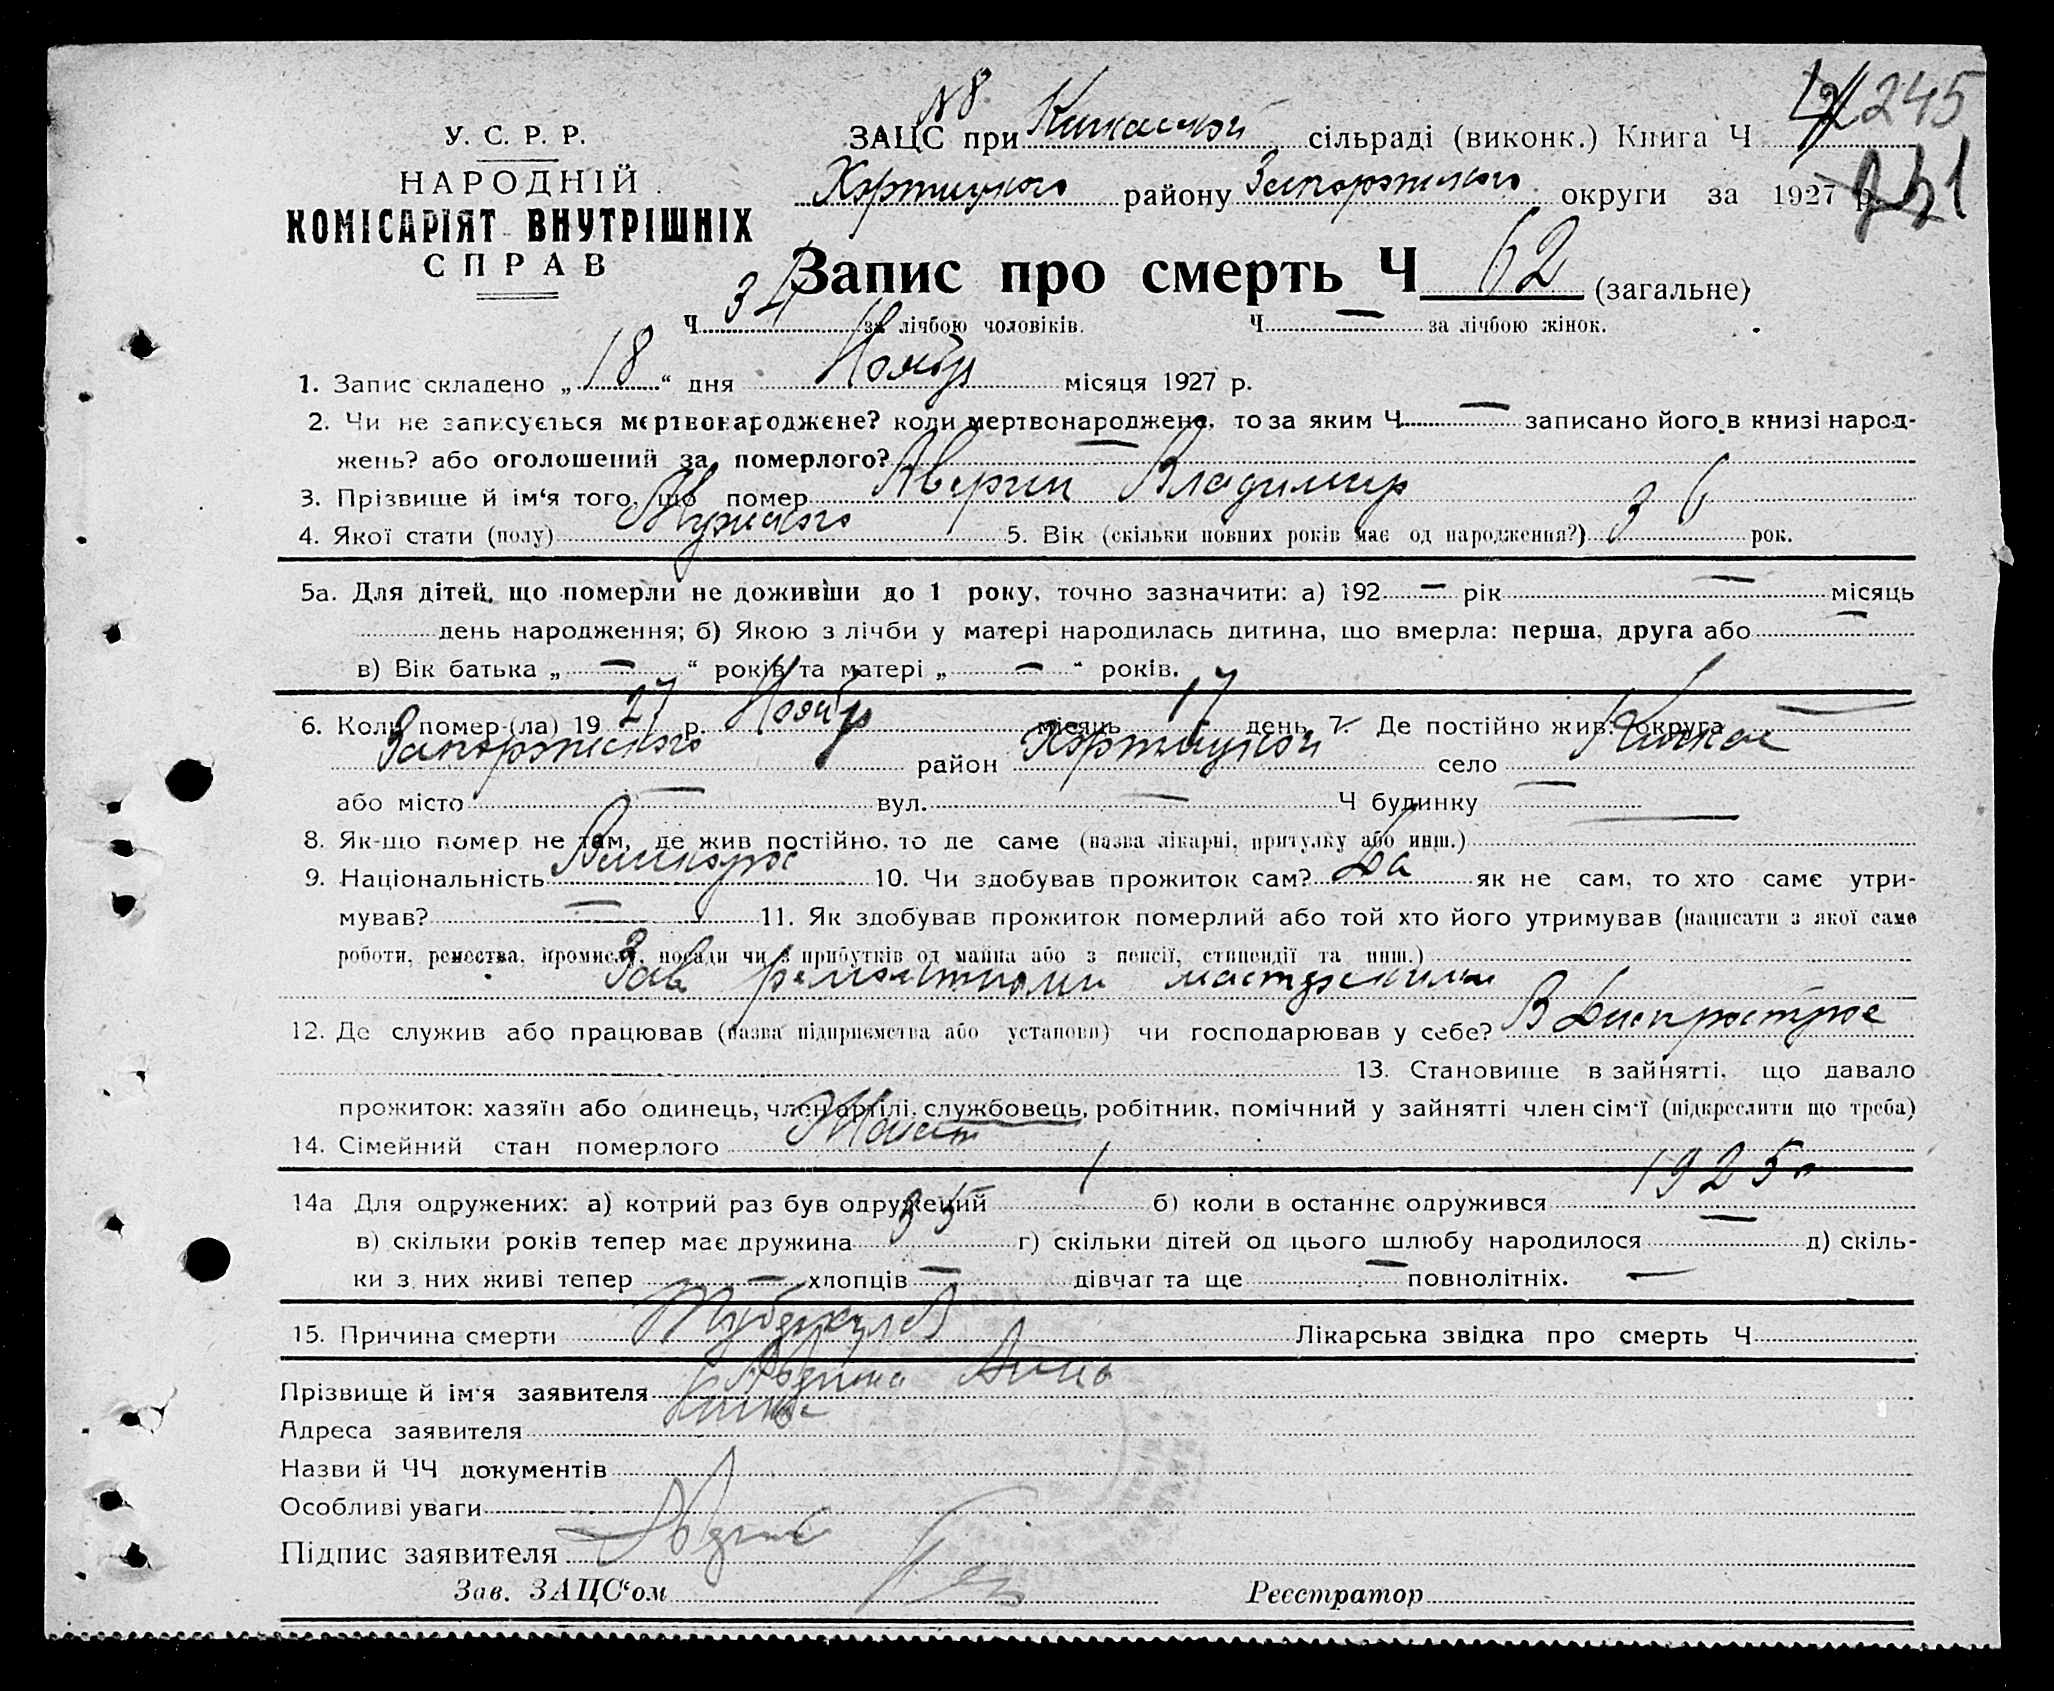 № 8
245
У. С. Р. Р.
ЗАЦС при Кичкаской сільраді (виконк.) Книга Ч
НАРОДНІЙ
Хортицкого району Запорожского округи за 1927 р.
КОМІСАРІЯТ ВНУТРІШНІХ
СПРАВ
Запис про смерть Ч 62 (загальне)
Ч 34 за лічбою чоловіків. Ч — за лічбою жінок.
1. Запис складено „18“ дня Ноябр місяця 1927 р.
2. Чи не записується мертвонароджене? коли мертвонароджене, то за яким Ч — записано його в книзі народ-
жень? або оголошений за померлого? —
3. Прізвище й ім‘я того, що помер Аверин Владимир
4. Якої стати (полу) Мужского 5. Вік (скільки повних років має од народження?) 36 рок.
5а. Для дітей, що померли не доживши до 1 року, точно зазначити: а) 192 — рік — місяць
день народження; б) Якою з лічби у матері народилась дитина, що вмерла: перша, друга або —
в) Вік батька „ — “ років та матері „ — “ років.
6. Коли помер (ла) 1927 р. Ноябр місяць 17 день 7. Де постійно жив: округа —
Запорожского район Хортицкой село Кичкас
або місто — вул. — Ч будинку —
8. Як-що помер не там, де жив постійно, то де саме (назва лікарні, притулку або инш.) —
9. Національність Великорос 10. Чи здобував прожиток сам? Да як не сам, то хто саме утри-
мував? — 11. Як здобував прожиток померлий або той хто його утримував (написати з якої саме
роботи, ремества, промислу, посади чи з прибутків од майна або з пенсії, стипендії та инш.)
Зав ремонтными мастерскими
12. Де служив або працював (назва підприємства або установи) чи господарював у себе? В Днепрострое
13. Становище в зайнятті, що давало
прожиток: хазяїн або одинець, член артілі, службовець, робітник, помічний у зайнятті член сім‘ї (підкреслити що треба)
14. Сімейний стан померлого Женат
14а Для одружених: а) котрий раз був одружений 1 б) коли в останнє одружився 1925 г
в) скільки років тепер має дружина 35 г) скільки дітей од цього шлюбу народилося — д) скіль-
ки з них живі тепер — хлопців — дівчат та ще — повнолітніх. —
15. Причина смерти Туберкулез Лікарська звідка про смерть Ч
Прізвище й ім‘я заявителя Анна
Адреса заявителя Кичкас
Назви й ЧЧ документів
Особливі уваги
Підпис заявителя
Зав. ЗАЦС‘ом Реєстратор